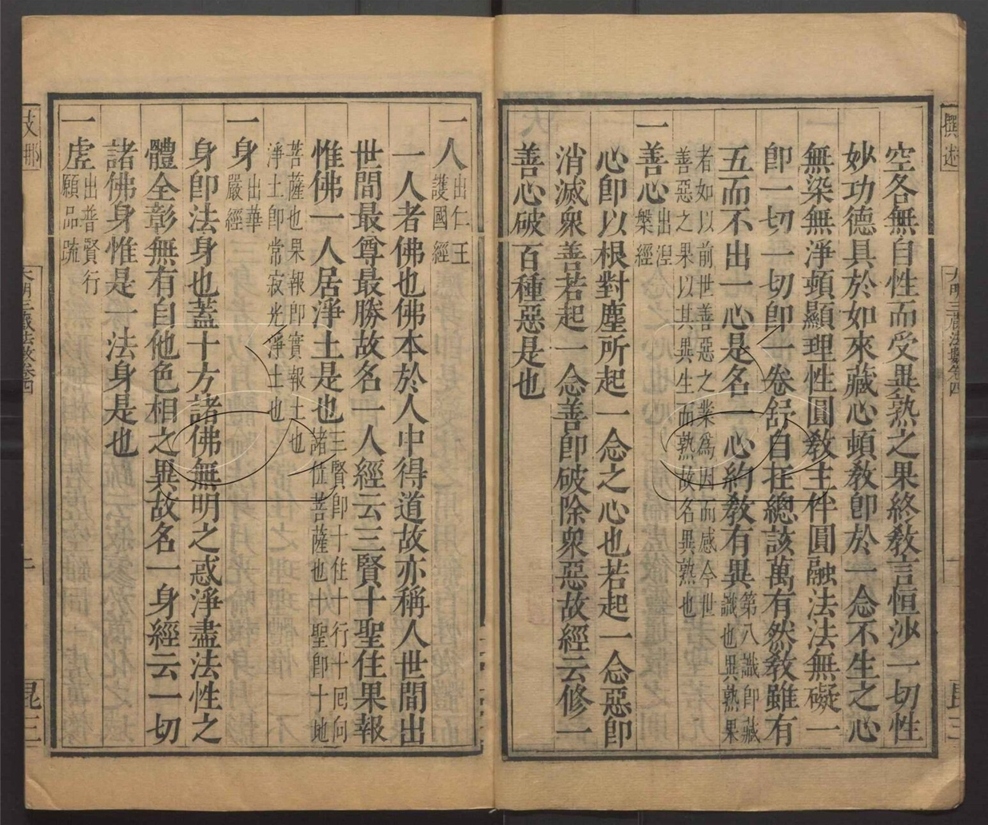 撰述
大明三藏法數卷四
昆三
空各無自性而受異熟之果終教言恒沙一切性
妙功德具於如來藏心頓教即於一念不生之心
無染無淨頓顯理性圓教主伴圓融法法無礙一
即一切一切即一卷舒自在總該萬有然教雖有
五而不出一心是名一心約教有異第八識即藏
識也異熟果
者如以前世善惡之業為因而感今世
善惡之果以其異生而熟故名異熟也
一善心出涅
槃經
心即以根對塵所起一念之心也若起一念惡即
消滅衆善若起一念善即破除衆惡故經云修一
善心破百種惡是也
一人出仁王
護國經
一人者佛也佛本於人中得道故亦稱人世間出
世間最尊最勝故名一人經云三賢十聖住果報
惟佛一人居淨土是也三賢即十住十行十回向
諸位菩薩也十聖即十地
菩薩也果報即實報土也
淨土即常寂光淨土也
一身出華
嚴經
身即法身也蓋十方諸佛無明之惑淨盡法性之
體全彰無有自他色相之異故名一身經云一切
諸佛身惟是一法身是也
一虛出普賢行
願品疏
支那
大明三藏法數卷四
昆三